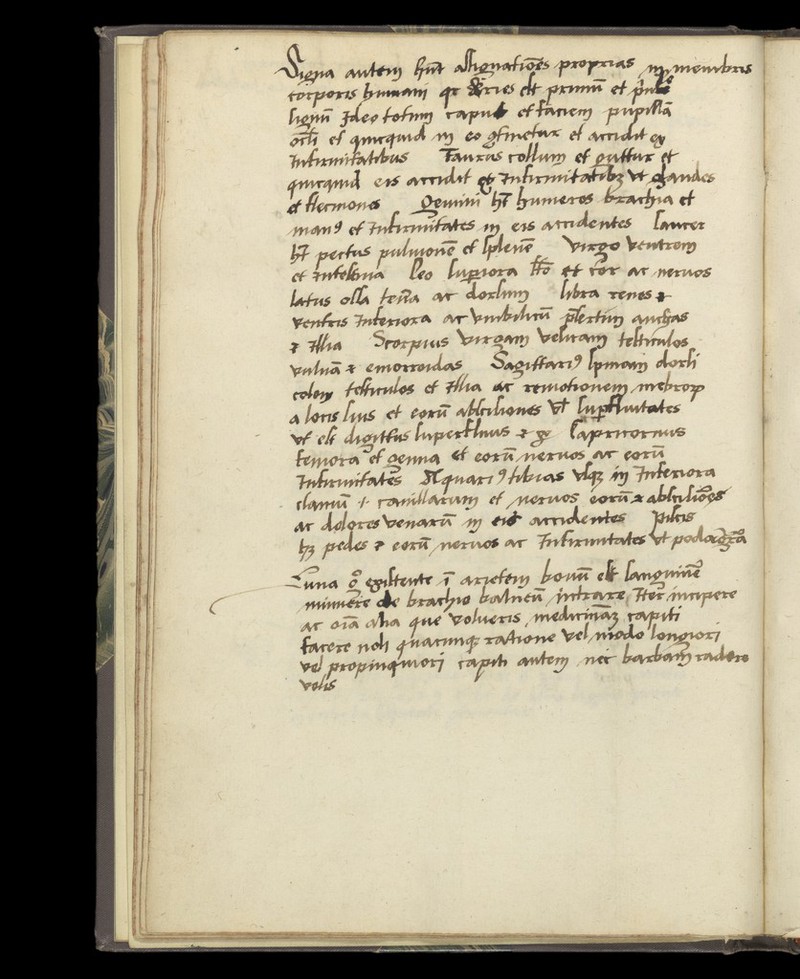 Signa autem hn̄t assignatiōes proprias in membris
corporis humani qr Aries est primū et
signū Ideo totum caput et faciem pupillā
ocĺi et quicquid in eo ꝯtinetur et accidit ex
Infirmitatibus Taurus collum et guttur et
quicquid eis accidit ex Infirmitatibꝫ vt glandes
et flecmones Gemini hn̄t humeros brachia et
manꝰ et Infirmitates in eis accidentes Cancer
hꝫ pectus pulmonē et splenē Virgo ventrem
et Intestina Leo supiora et cor ac nervos
latus ossa ac dorsum Libra renes ⁊
ventris Inferiora ac vmbilicū anchas
⁊ Illia Scorpius virgam vesicam testiculos
vuluā ⁊ emorroidas Sagittariꝰ spinam dorsi
colon testiculos et Illia ac remotionem mēbroꝝ
a locis suis et eorū abscisiones vĺ supfluitates
vt est digittus superfluus ⁊ Capricornus
femora et genua et eorū nervos ac eorū
Infirmitates Aquariꝰ tibias vsqꝫ in Inferiora
.i. cauillarum et nervos eorū ⁊ abscisiōes
ac dolores venarū in eis accidentes Piscis
hꝫ pedes ⁊ eorū nervos ac Infirmitates vt podagrā
Luna existente ī arietem bonū est sanguinē
minuere de brachio balneū intrare Iter incipere
ac oīa alia que volueris medicinā capiti
facere noli quacumqꝫ ratione vel modo longiori
vel propinquiori capiti autem nec barbam radere
velis